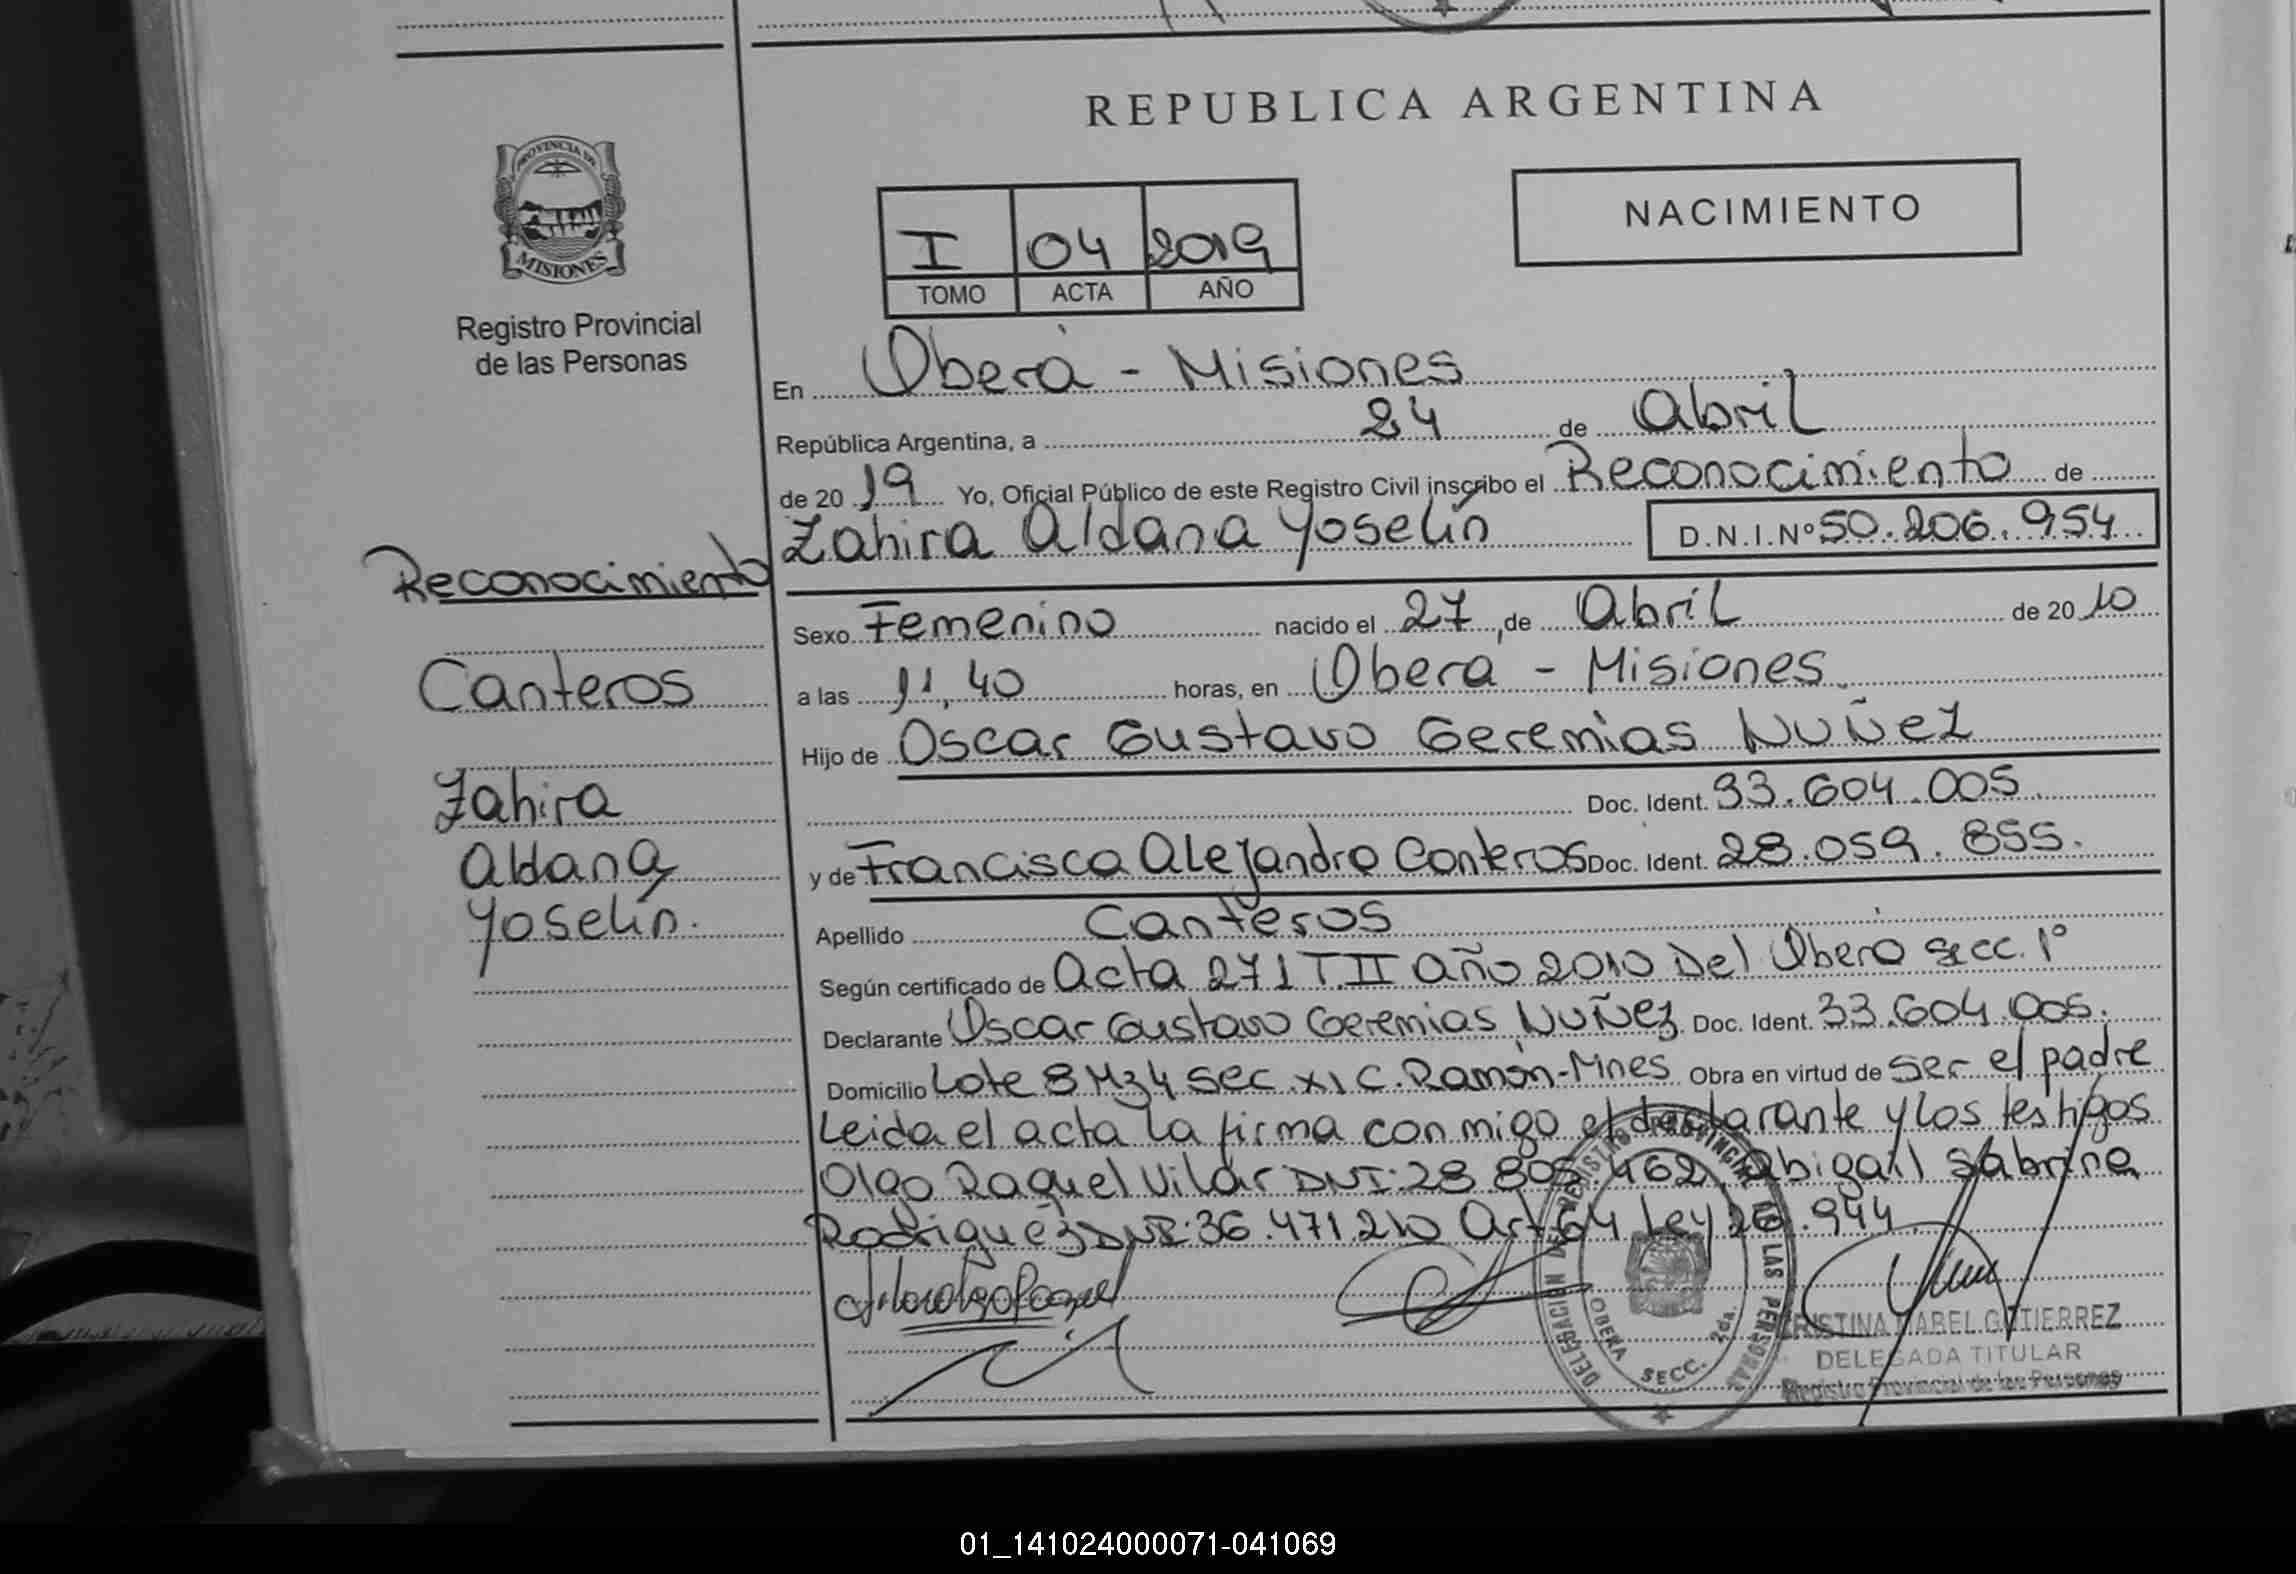 REPUBLICA ARGENTINA
PROVINCIA DE
MISIONES
Registro Provincial
de las Personas
NACIMIENTO
I 04 2019
TOMO ACTA AÑO
En Oberá - Misiones
República Argentina, a 24 de Abril
de 20 19 Yo, Oficial Público de este Registro Civil inscribo el Reconocimiento de
Zahira Aldana Yoselín D.N.I.Nº 50.206.954
Reconocimiento
Canteros
Zahira
Aldana
Yoselín.
Sexo Femenino nacido el 27, de Abril de 20 10
a las 11,40 horas, en Oberá - Misiones
Hijo de Oscar Gustavo Geremias Nuñez
Doc. Ident. 33.604.005
y de Francisca Alejandra Canteros Doc. Ident. 28.059.855.
Apellido Canteros
Según certificado de Acta 271 T.II Año 2010 Del Obera secc. 1°
Declarante Oscar Gustavo Geremias Nuñez Doc. Ident. 33.604.005.
Domicilio Lote 8 Mz 4 Sec. XI C. Ramón-Mnes Obra en virtud de ser el padre
Leida el acta la firma con migo el declarante y los testigos
Olga Raquel Vilar DNI: 28.805.462, Abigail Sabrina
Rodriguez DNI: 36.471.210 Art 64 Ley 26.944
DELEGACION DEL REGISTRO PROVINCIAL DE LAS PERSONAS
OBERA SECC. 2da.
CRISTINA MABEL GUTIERREZ
DELEGADA TITULAR
Registro Provincial de las Personas
01_141024000071-041069